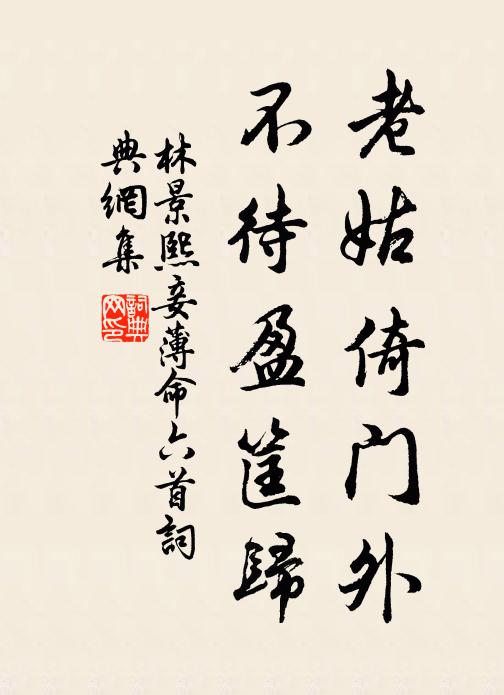 老姑倚门外
不待盈筐歸
林景熙妾薄命六首詞
典網集
詞典網印